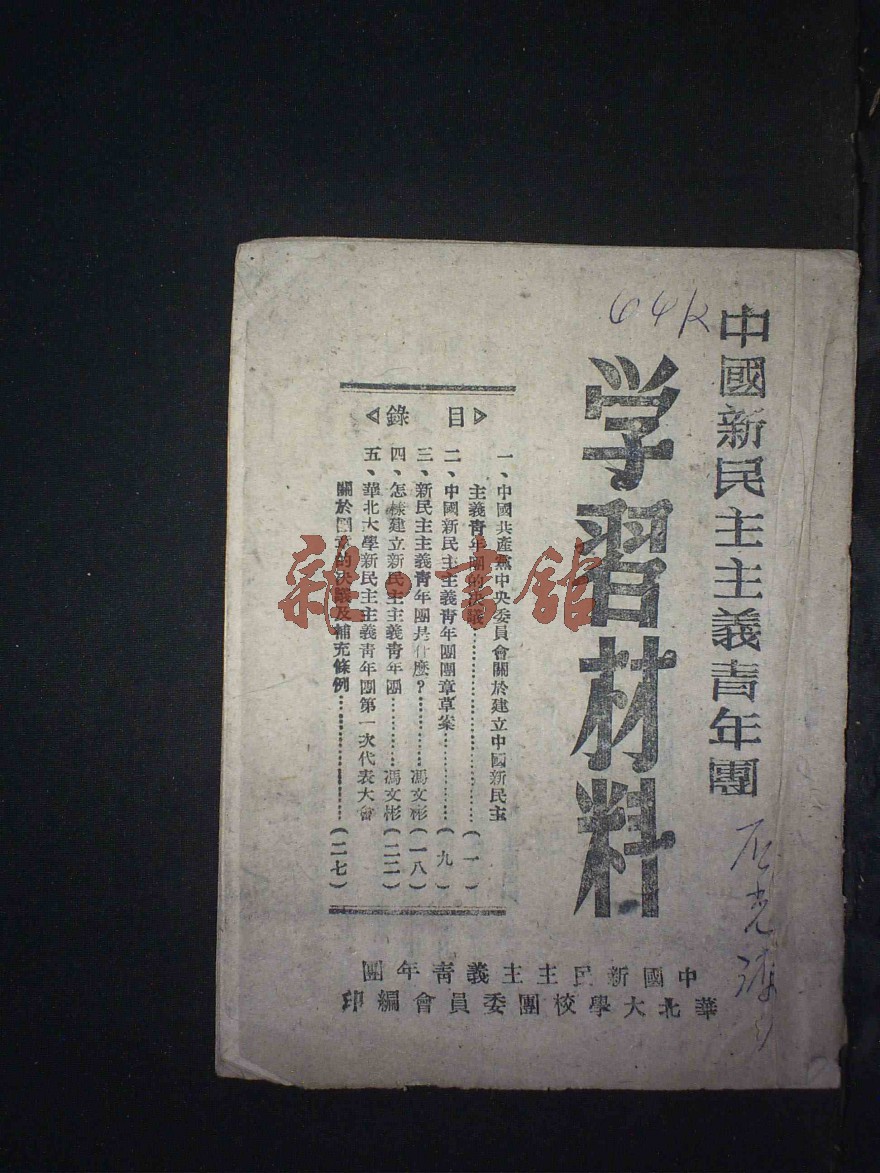 中國新民主主義青年團
学習材料
64K
目錄
一、中國共產黨中央委員會關於建立中國新民主
主義青年團的決議…………(一)
二、中國新民主主義青年團團章草案…………(九)
三、新民主主義青年團是什麼？…………馮文彬(一八)
四、怎樣建立新民主主義青年團…………馮文彬(二二)
五、華北大學新民主主義青年團第一次代表大會
關於團章的決議及補充條例…………(二七)
中國新民主主義青年團
華北大學校團委員會編印
雜書館